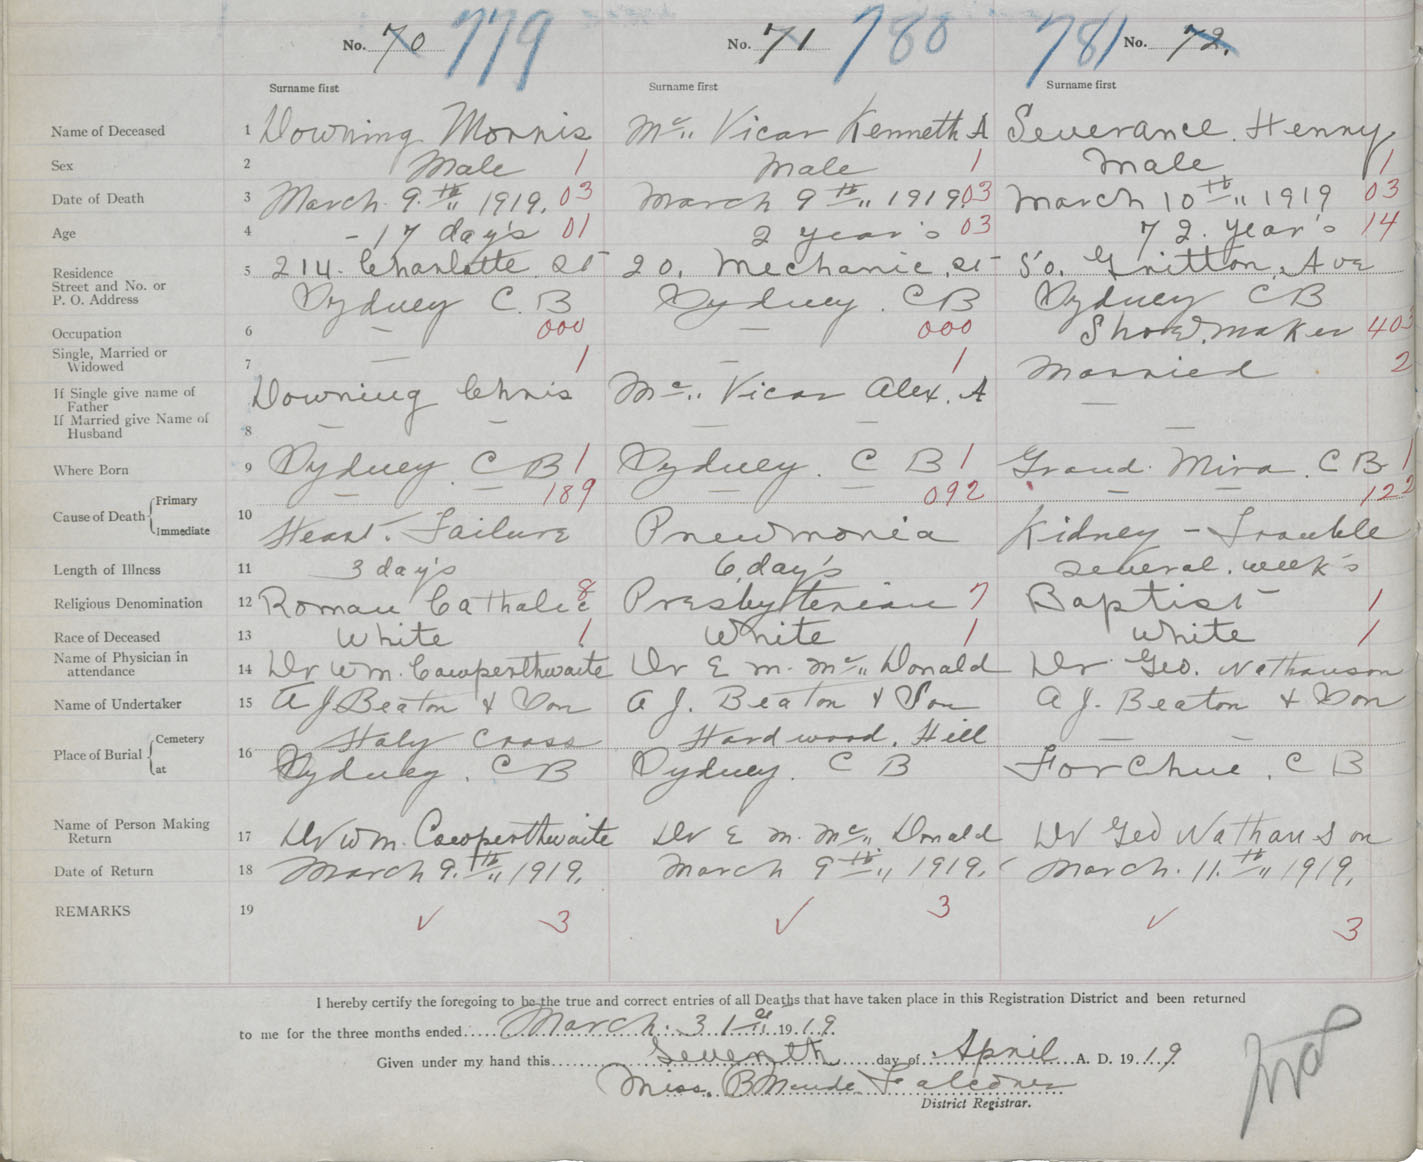 No. 70 779 No. 71 780 781 No. 72.
Surname first Surname first Surname first
Name of Deceased 1 Downing Morris Mc„ Vicar Kenneth A Severance. Henry
Sex 2 Male 1 Male 1 Male 1
Date of Death 3 March. 9.th„ 1919. 03 March 9th„ 1919. 03 March 10th„ 1919 03
Age 4 -17 day's 01 2 year's 03 72. year's 14
Residence
Street and No. or
P. O. Address
5 214. Charlotte. St 20. Mechanic. St 50. Gritton. Ave
Sydney C. B Sydney. C B Sydney C B
Occupation 6 — 000 — 000 Shoe.maker 403
Single, Married or
Widowed
7 — 1 — 1 Married 2
If Single give name of
Father
If Married give Name of
Husband
8 Downing Chris Mc„ Vicar Alex. A —
— — — — —
Where Born 9 Sydney. C B 1 Sydney. C B 1 Grand. Mira. C B 1
Cause of Death Primary — — 189 — — 092 — — 122
Immediate 10 Heart. Failure Pneumonia Kidney - Trouble
Length of Illness 11 3 day's 6 day's several. week's
Religious Denomination 12 Roman Catholic 8 Presbyterian 7 Baptist 1
Race of Deceased 13 White 1 White 1 White 1
Name of Physician in
attendance
14 Dr Wm. Cowperthwaite Dr E M. Mc„ Donald Dr. Geo. Nathanson
Name of Undertaker 15 A J Beaton & Son A J. Beaton & Son A J. Beaton & Son
Place of Burial Cemetery Holy Cross Hardwood. Hill — —
at 16 Sydney. C B Sydney. C B Forchue. C B
Name of Person Making
Return
17 Dr Wm. Cowperthwaite Dr E M. Mc„ Donald Dr Geo Nathanson
Date of Return 18 March 9.th„ 1919. March 9th„ 1919. March. 11.th„ 1919.
REMARKS 19 ✓ 3 ✓ 3 ✓ 3
I hereby certify the foregoing to be the true and correct entries of all Deaths that have taken place in this Registration District and been returned
to me for the three months ended March. 31st 1919.
Given under my hand this Seventh day of April A. D. 1919
Miss. B Maude Falconer
District Registrar.